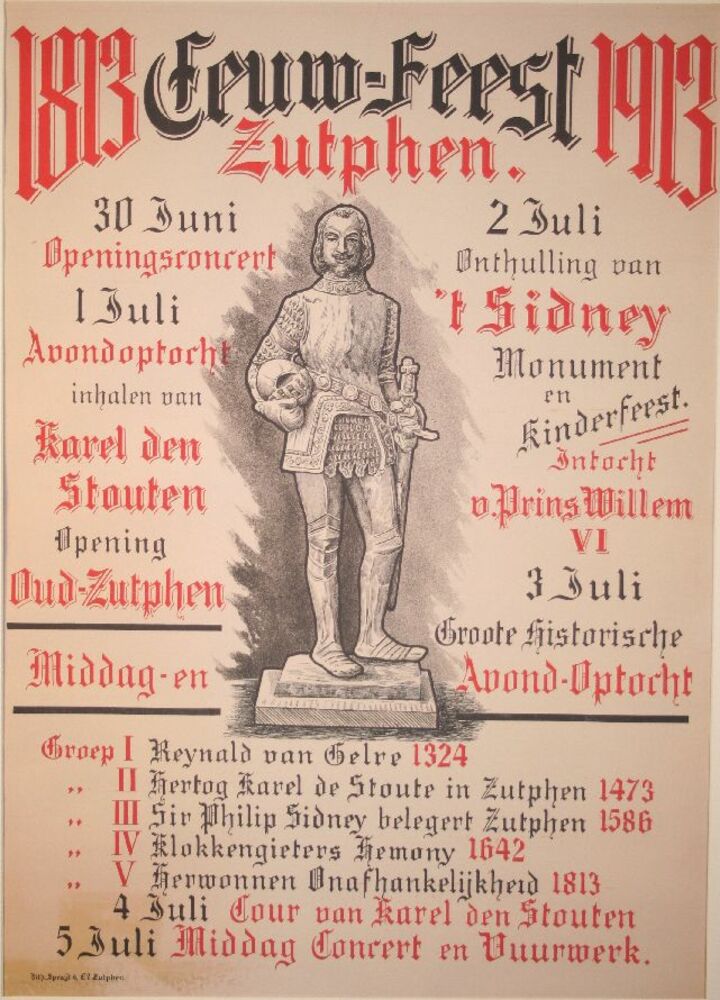 1813 Eeuw-Feest 1913
Zutphen.
30 Juni
Openingsconcert
1 Juli
Avondoptocht
inhalen van
Karel den
Stouten
Opening
Oud-Zutphen
2 Juli
Onthulling van
't Sidney
Monument
en
Kinderfeest.
Intocht
v. Prins Willem
VI
3 Juli
Groote Historische
Middag-en Avond-Optocht
Groep I Reynald van Gelre 1324
„ II Hertog Karel de Stoute in Zutphen 1473
„ III Sir Philip Sidney belegert Zutphen 1586
„ IV Klokkengieters Hemony 1642
„ V Herwonnen Onafhankelijkheid 1813
4 Juli Cour van Karel den Stouten
5 Juli Middag Concert en Vuurwerk.
Zutphen